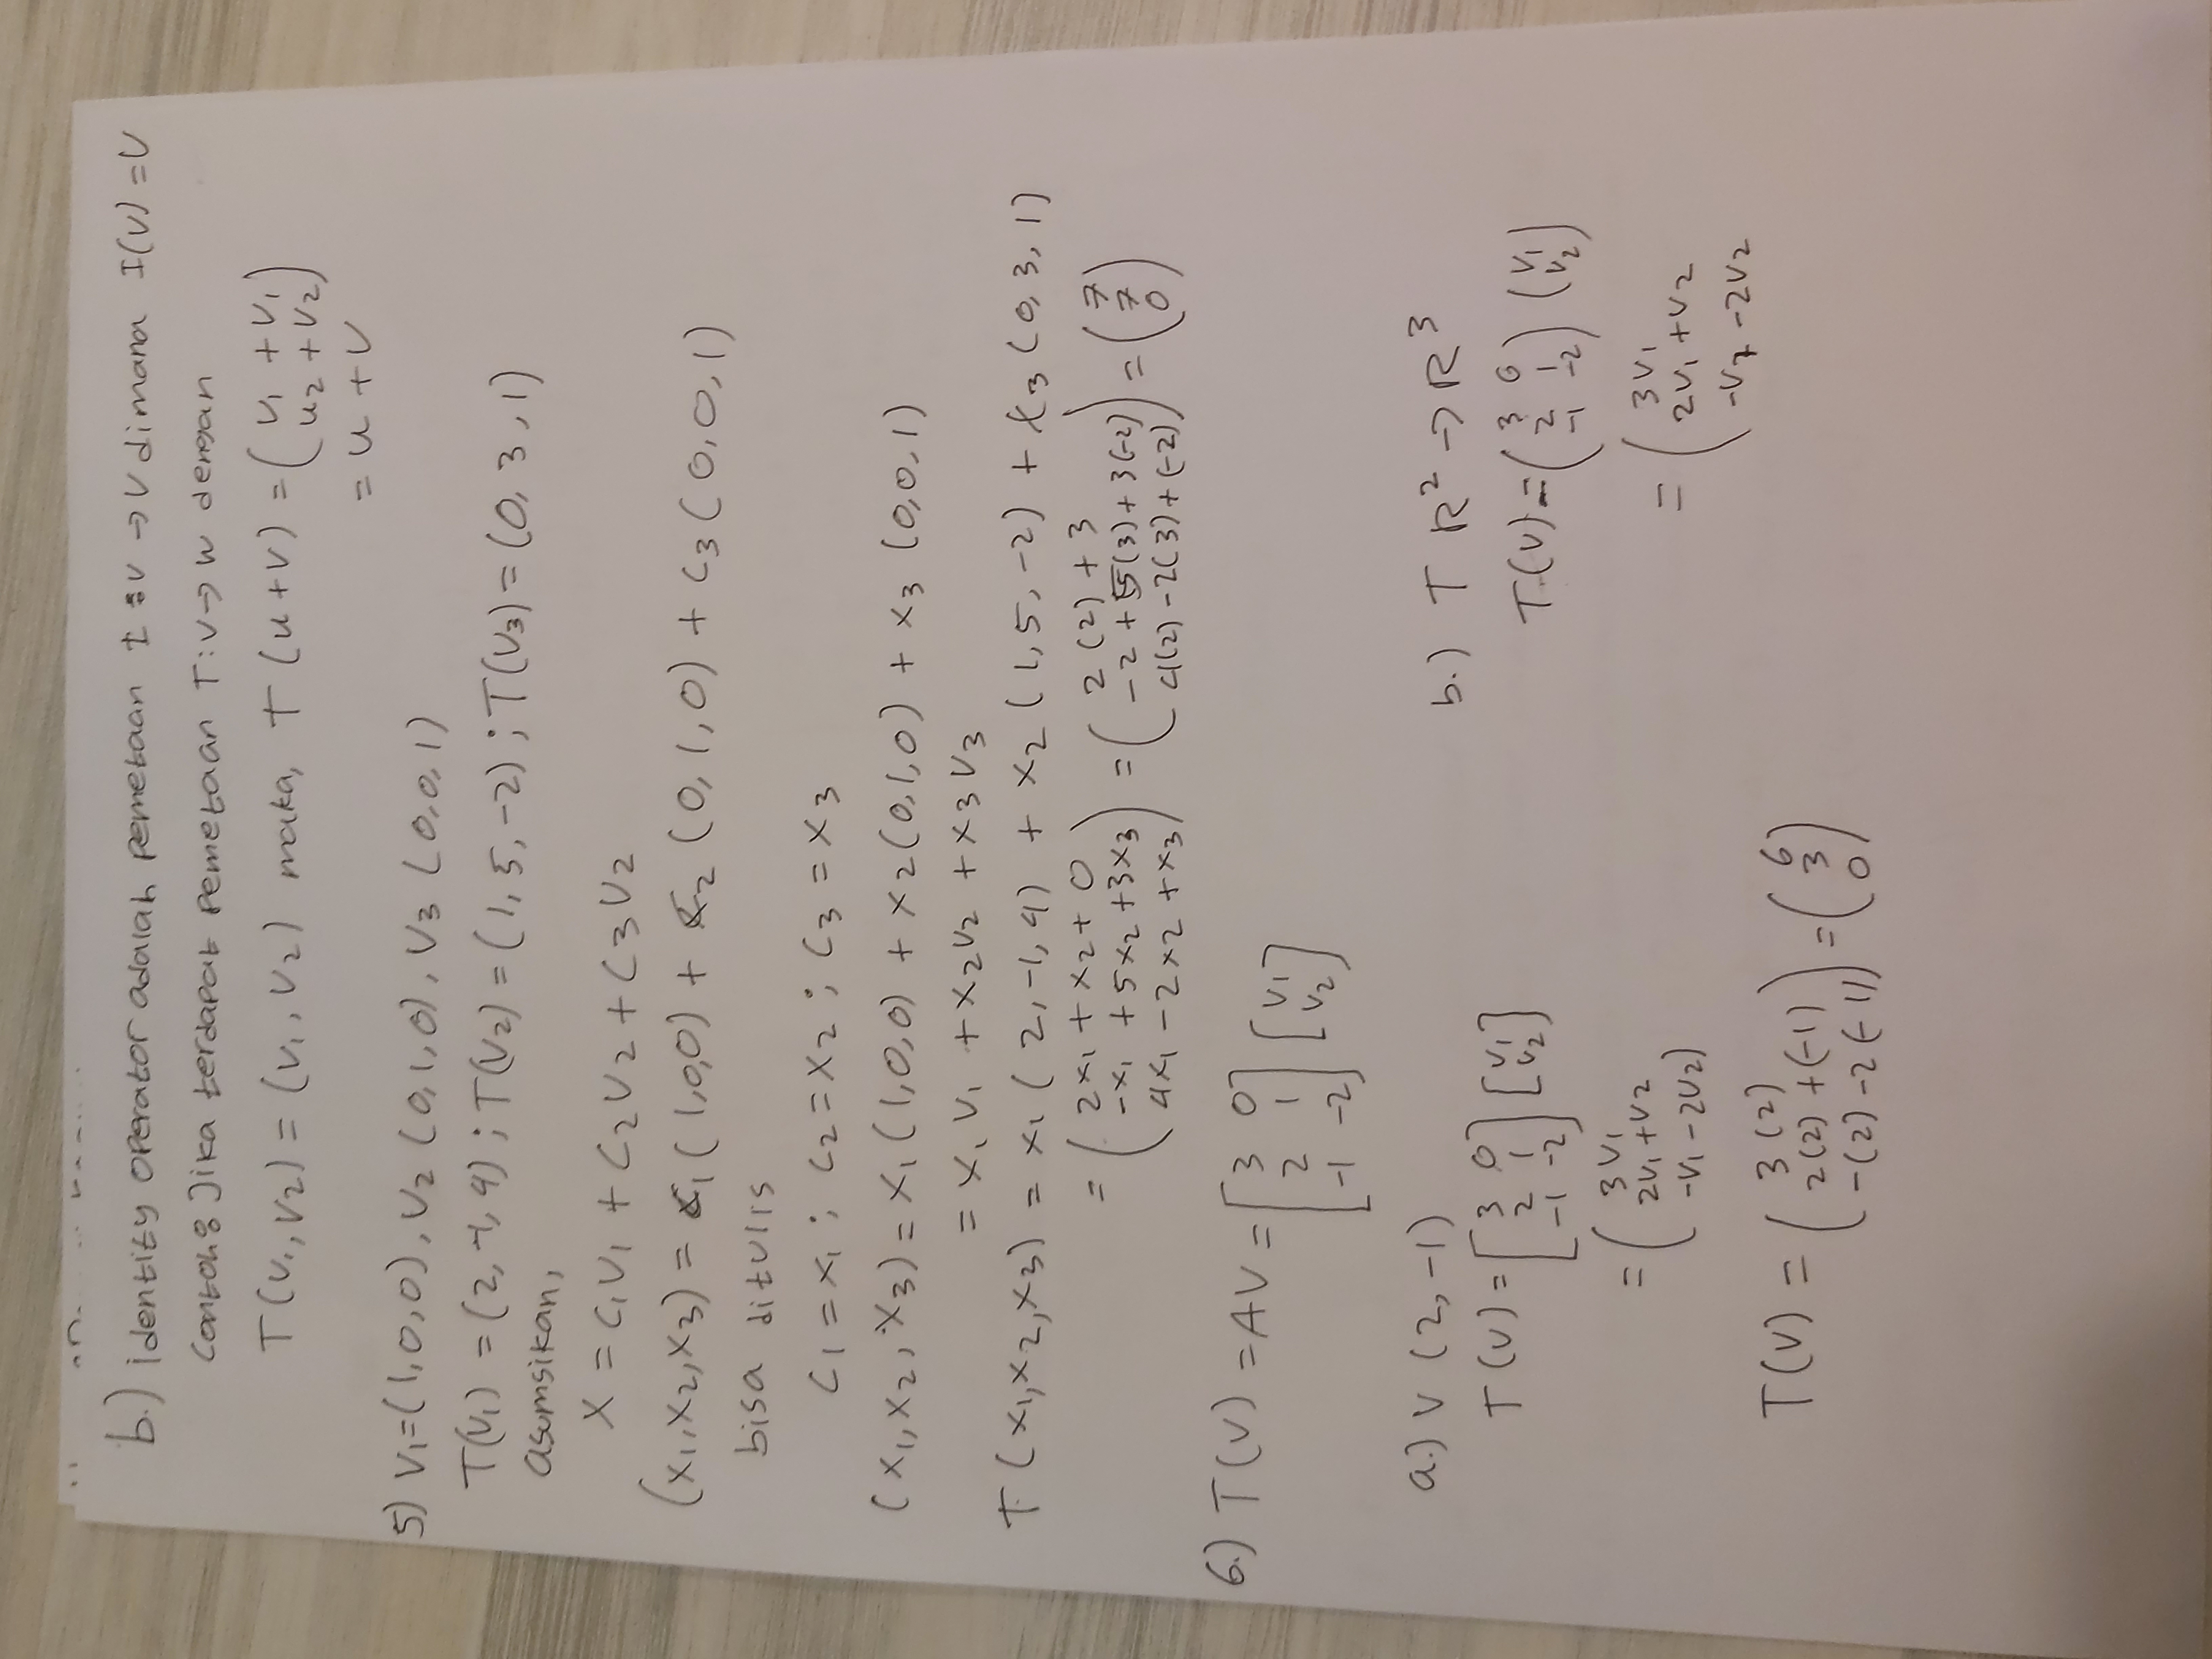 b.) identity operator adalah pemetaan I : V → V dimana I(V) = V
contoh: Jika terdapat pemetaan T : V → W dengan
T (V1, V2) = (V1, V2) maka, T (u+v) = (u1 + v1
u2 + v2)
= u + v
5) V1 = (1,0,0), V2 (0,1,0), V3 (0,0,1)
T(V1) = (2,-1,4) ; T(V2) = (1,5,-2) ; T(V3) = (0,3,1)
asumsikan,
X = C1V1 + C2V2 + C3V2
(X1,X2,X3) = C1 (1,0,0) + C2 (0,1,0) + C3 (0,0,1)
bisa ditulis
C1 = X1 ; C2 = X2 ; C3 = X3
(X1, X2, X3) = X1 (1,0,0) + X2 (0,1,0) + X3 (0,0,1)
= X1V1 + X2V2 + X3V3
T (X1,X2,X3) = X1 (2,-1,4) + X2 (1,5,-2) + X3 (0,3,1)
= (2X1 + X2 + 0
-X1 + 5X2 + 3X3
4X1 - 2X2 + X3) = (2(2) + 3
-2 + 5(3) + 3(-2)
4(2) - 2(3) + (-2)) = (7
7
0)
6.) T(V) = AV = [3 0
2 1
-1 -2] [V1
V2]
a.) V (2,-1)
T(V) = [3 0
2 1
-1 -2] [V1
V2]
= (3V1
2V1 + V2
-V1 - 2V2)
T(V) = (3(2)
2(2) + (-1)
-(2) - 2(-1)) = (6
3
0)
b.) T R² → R³
T(V) = (3 0
2 1
-1 -2) (V1
V2)
= (3V1
2V1 + V2
-V1 - 2V2